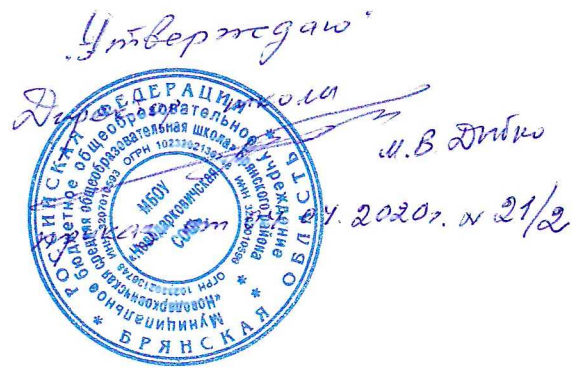 "Утверждаю"
Директор школы
М.В Дыбко
приказ от 04.2020г. № 21/2
РОССИЙСКАЯ ФЕДЕРАЦИЯ
БРЯНСКАЯ ОБЛАСТЬ
Муниципальное бюджетное общеобразовательное учреждение
«Новодарковичская средняя общеобразовательная школа» Брянского района
ОГРН ИНН
МБОУ
«Новодарковичская
СОШ»